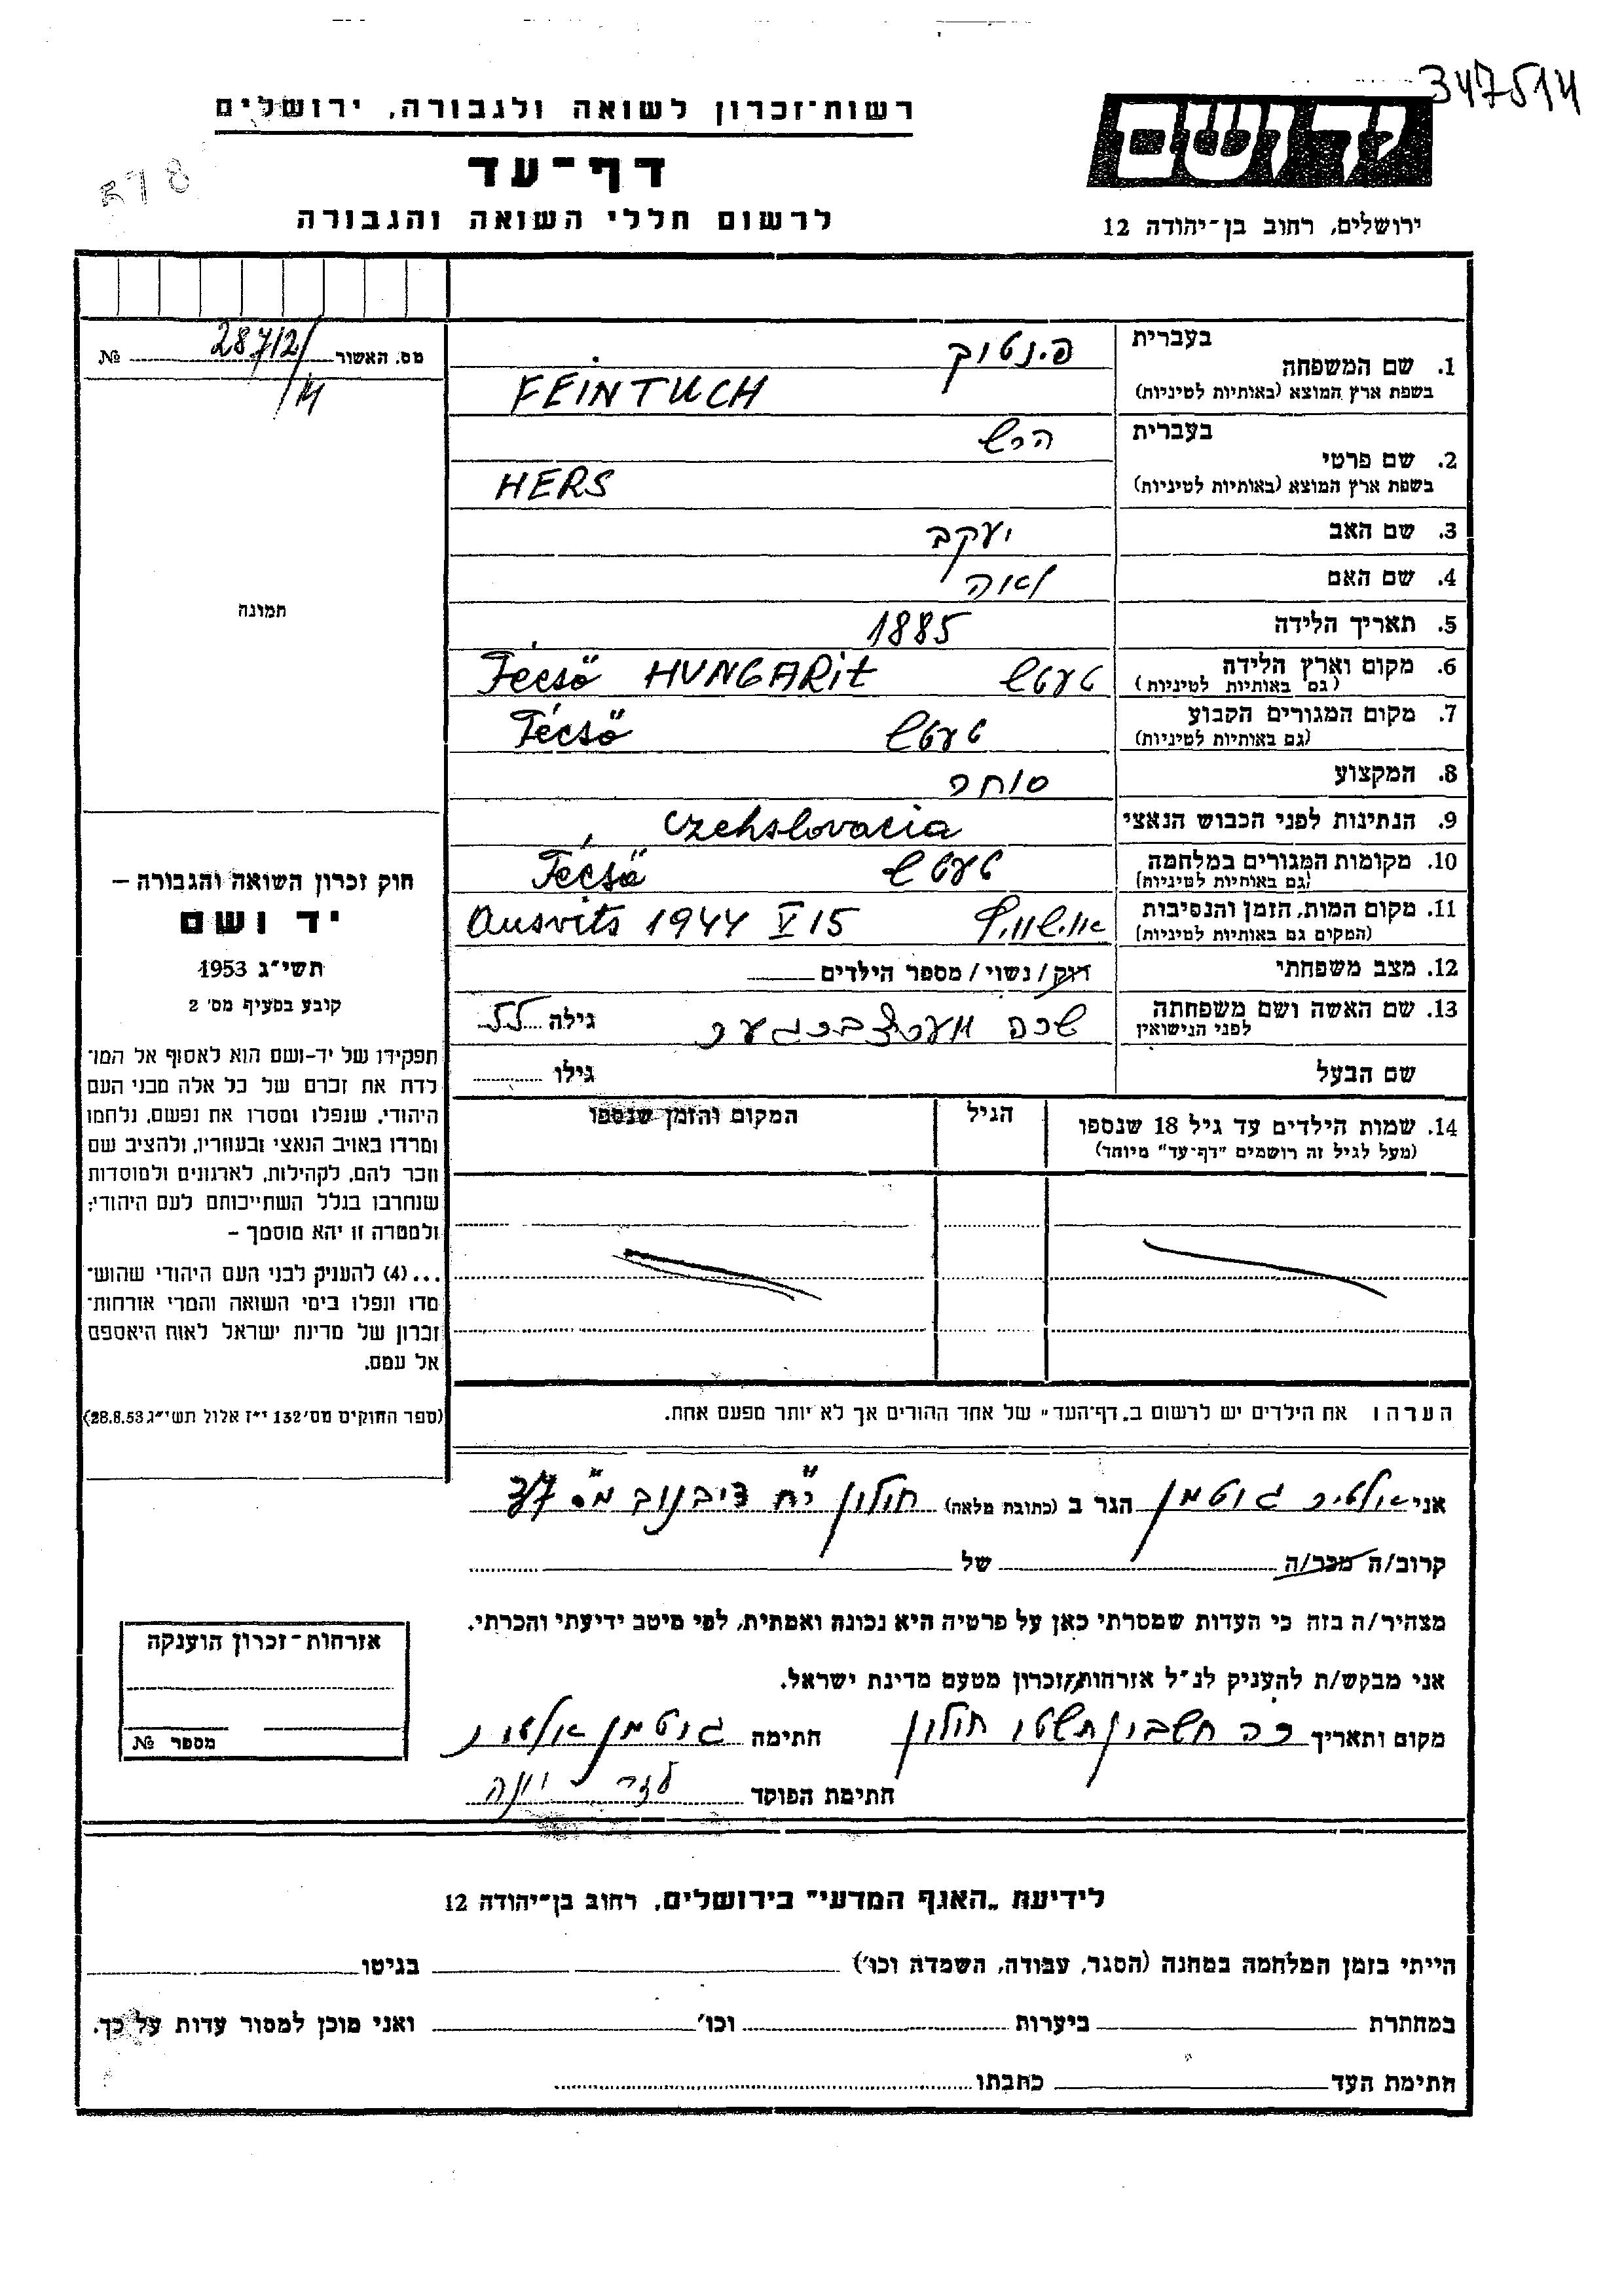 347514
רשות־זכרון לשואה ולגבורה, ירושלים
דף־עד
לרשום חללי השואה והגבורה
ידושם
ירושלים, רחוב בן־יהודה 12
578
מס. האשור 28712/ №
/14
תמונה
בעברית
1. שם המשפחה פינטוך
בשפת ארץ המוצא (באותיות לטיניות) FEINTUCH
בעברית
2. שם פרטי הרש
בשפת ארץ המוצא (באותיות לטיניות) HERS
3. שם האב יעקב
4. שם האם לאה
5. תאריך הלידה 1885
6. מקום וארץ הלידה טעטש HUNGARit Técső
(גם באותיות לטיניות)
7. מקום המגורים הקבוע טעטש Técső
(גם באותיות לטיניות)
8. המקצוע סוחר
9. הנתינות לפני הכבוש הנאצי Czehslovacia
10. מקומות המגורים במלחמה טעטש Técső
(גם באותיות לטיניות)
11. מקום המות, הזמן והנסיבות אוישוויץ Ausvits 1944 V 15
(המקום גם באותיות לטיניות)
12. מצב משפחתי רווק/נשוי/מספר הילדים
13. שם האשה ושם משפחתה
לפני הנישואין
שרה
גילה
שם הבעל גילו
14. שמות הילדים עד גיל 18 שנספו הגיל המקום והזמן שנספו
(מעל לגיל זה רושמים "דף־עד" מיוחד)
הערה: את הילדים יש לרשום ב„דף־העד" של אחד ההורים אך לא יותר מפעם אחת.
חוק זכרון השואה והגבורה –
יד ושם
תשי״ג 1953
קובע בסעיף מס' 2
תפקידו של יד־ושם הוא לאסוף אל המו־
לדת את זכרם של כל אלה מבני העם
היהודי, שנפלו ומסרו את נפשם, נלחמו
ומרדו באויב הנאצי ובעוזריו, ולהציב שם
וזכר להם, לקהילות, לארגונים ולמוסדות
שנחרבו בגלל השתייכותם לעם היהודי;
ולמטרה זו יהא מוסמך –
...(4) להעניק לבני העם היהודי שהוש־
מדו ונפלו בימי השואה והמרי אזרחות־
זכרון של מדינת ישראל לאות היאספם
אל עמם.
(ספר החוקים מס' 132 י״ז אלול תשי״ג 28.8.53)
אני אלטיר גוטמן הגר ב (כתובת מלאה) חולון רח דיבנוב מס. 37
קרוב/ה מכר/ה של
מצהיר/ה בזה כי העדות שמסרתי כאן על פרטיה היא נכונה ואמתית, לפי מיטב ידיעתי והכרתי.
אני מבקש/ת להעניק לנ״ל אזרחות־זכרון מטעם מדינת ישראל.
מקום ותאריך כה חשבון תשטו חולון חתימה גוטמן אלטיר
חתימת הפוקד יונה
אזרחות־זכרון הוענקה
מספר №
לידיעת „האגף המדעי" בירושלים, רחוב בן־יהודה 12
הייתי בזמן המלחמה במחנה (הסגר, עבודה, השמדה וכו') בגיטו
במחתרת ביערות וכו' ואני מוכן למסור עדות על כך.
חתימת העד כתבתו